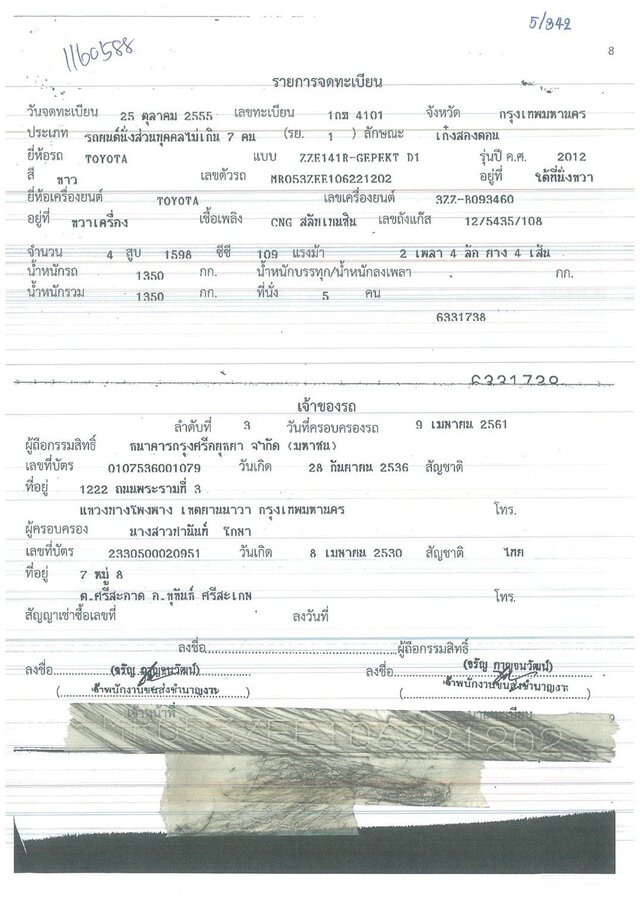 5/342
1160588
8
รายการจดทะเบียน
วันจดทะเบียน 25 ตุลาคม 2555 เลขทะเบียน 1กฆ 4101 จังหวัด กรุงเทพมหานคร
ประเภท รถยนต์นั่งส่วนบุคคลไม่เกิน 7 คน (รย. 1 ) ลักษณะ เก๋งสองตอน
ยี่ห้อรถ TOYOTA แบบ ZZE141R-GEPEKT D1 รุ่นปี ค.ศ. 2012
สี ขาว เลขตัวรถ MR053ZEE106221202 อยู่ที่ ใต้ที่นั่งขวา
ยี่ห้อเครื่องยนต์ TOYOTA เลขเครื่องยนต์ 3ZZ-B093460
อยู่ที่ ขวาเครื่อง เชื้อเพลิง CNG สลับเบนซิน เลขถังแก๊ส 12/5435/108
จำนวน 4 สูบ 1598 ซีซี 109 แรงม้า 2 เพลา 4 ล้อ ยาง 4 เส้น
น้ำหนักรถ 1350 กก. น้ำหนักบรรทุก/น้ำหนักลงเพลา กก.
น้ำหนักรวม 1350 กก. ที่นั่ง 5 คน
6331738
6331738
เจ้าของรถ
ลำดับที่ 3 วันที่ครอบครองรถ 9 เมษายน 2561
ผู้ถือกรรมสิทธิ์ ธนาคารกรุงศรีอยุธยา จำกัด (มหาชน)
เลขที่บัตร 0107536001079 วันเกิด 28 กันยายน 2536 สัญชาติ
ที่อยู่ 1222 ถนนพระรามที่ 3
แขวงบางโพงพาง เขตยานนาวา กรุงเทพมหานคร โทร.
ผู้ครอบครอง นางสาวปานันท์
เลขที่บัตร 2330500020951 วันเกิด 8 เมษายน 2530 สัญชาติ ไทย
ที่อยู่ 7 หมู่ 8
ต.ศรีสะอาด อ.ขุขันธ์ ศรีสะเกษ โทร.
สัญญาเช่าซื้อเลขที่ ลงวันที่
ลงชื่อ ผู้ถือกรรมสิทธิ์
ลงชื่อ (จรัญ กาญจนวัฒน์) ลงชื่อ (จรัญ กาญจนวัฒน์)
( เจ้าพนักงานขนส่งชำนาญงาน ) ( เจ้าพนักงานขนส่งชำนาญงาน )
เจ้าหน้าที่ นายทะเบียน
MR053ZEE106221202